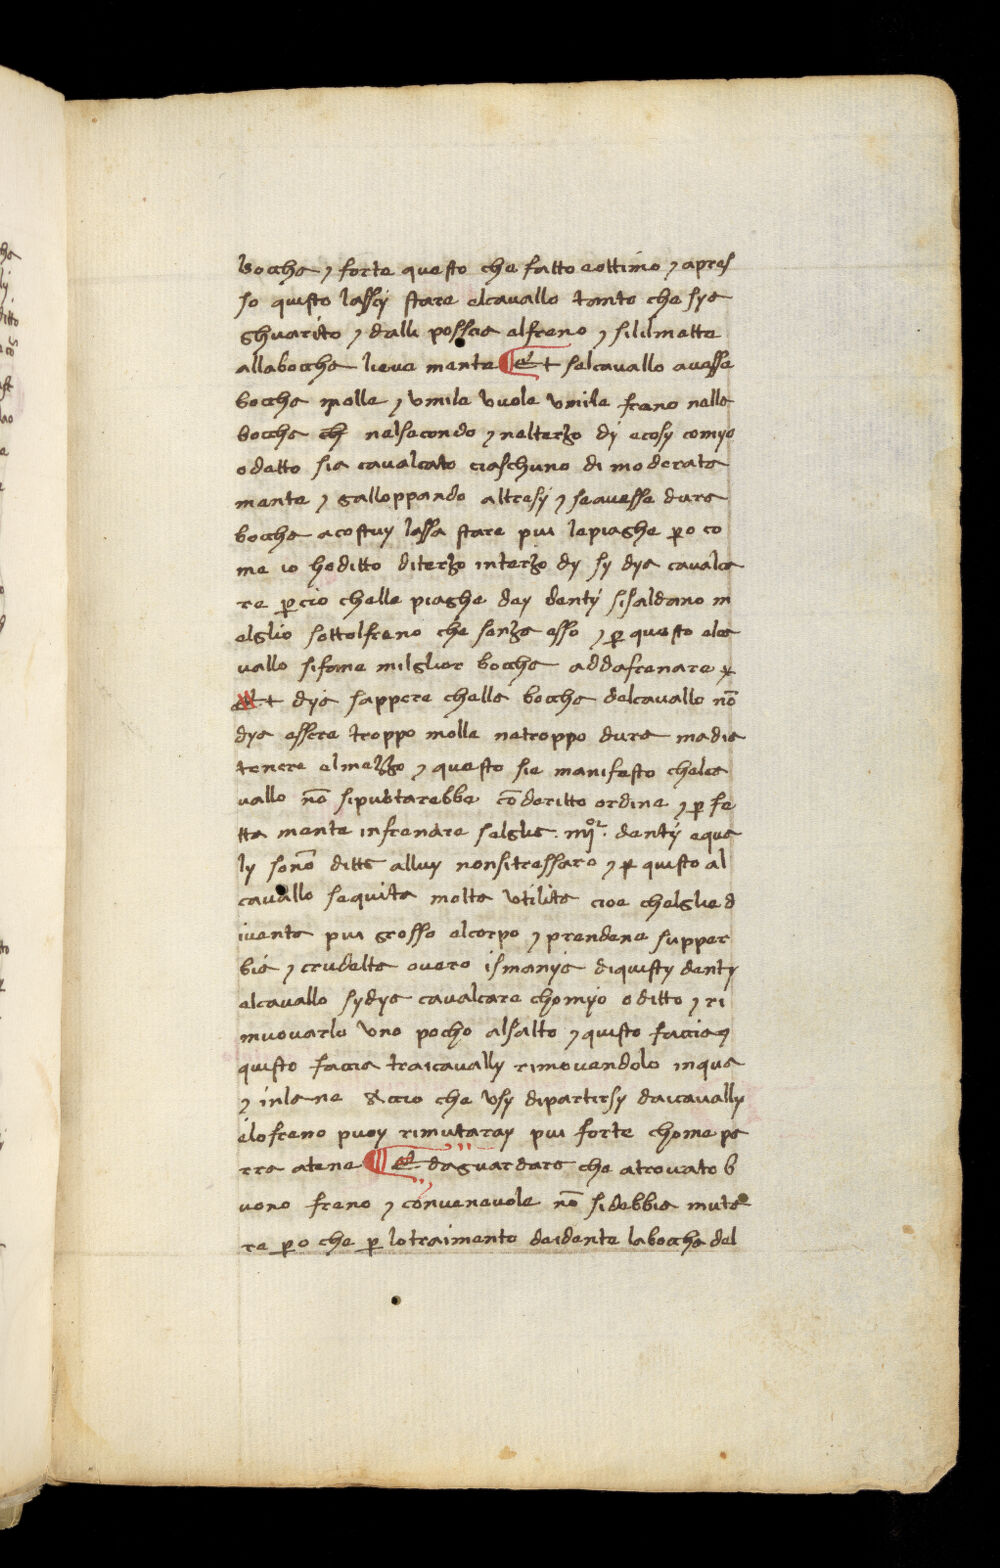 boccha ⁊ forte questo che fatto eottimo ⁊ apres
so quisto lassij stare elcavallo tanto che sya
ghuarito ⁊ dalli posscia elfreno ⁊ sililmette
allaboccha lieve mente Et selcavallo avesse
boccha molle ⁊ vmile vuole vmile freno nella
boccha nelsecondo ⁊ nelterzo dy ecosy comyo
odetto sia cavalcato ciaschuno di moderata
mente ⁊ galloppando altresij ⁊ seavesse dura
boccha acostuy lassa stare piu lepiaghe ꝑo co
me io heditto diterzo interzo dy sy dya cavalca
re ꝑcio chelle piaghe dey dentij sisaldano m
elglio sottolfreno che senza esso ⁊ ꝑ questo elca
vallo sifane milglior boccha addafrenare
Et dya sappere chella boccha delcavallo nō
dya essere troppo molle netroppo dura madia
tenere elmezzo ⁊ questo sie manifesto chelca
vallo nō sipuotarebbe cō deritto ordine ⁊ ꝑ fe
tta mente infrenare selglie . iiijoͬ . dentij eque
ly sonō ditta alluy nonsitressaro ⁊ ꝑ quisto al
cavallo sequita molta vtilita cioe chelglie d
iventa piu grosso elcorpo ⁊ prendene supper
bia ⁊ crudelta overo ismanya diquisty denty
elcavallo sydya cavalcare chomyo oditto ⁊ ri
muovarlo vno pocho alsalto ⁊ quisto faccia
quisto faccia traicavally rimovendolo inqua
⁊ inlane &ccio che vsy dipartirsy daicavally
elofreno puoy rimutaray piu forte chome pa
rra atene Et daguardare che atrovato b
uono freno ⁊ convenevole nō sidebbia muta
re ꝑo che ꝑ lotraimento deidente laboccha del